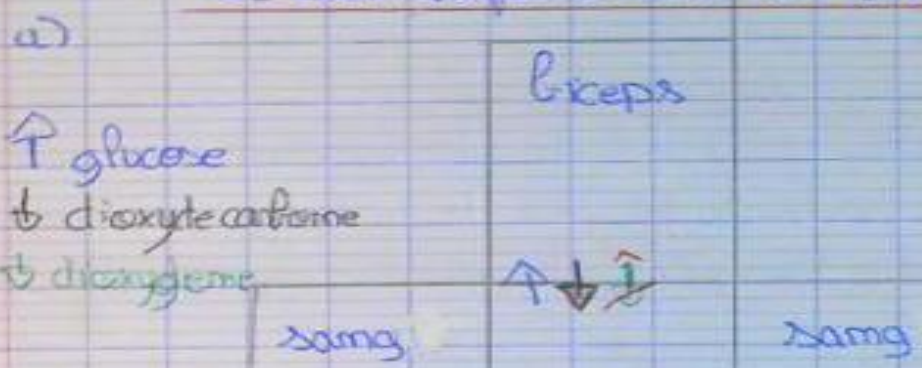 a)
biceps
↑ glucose
↓ dioxyte carbone
↓ dioxygene
↑ ↓ ↑
sang
sang